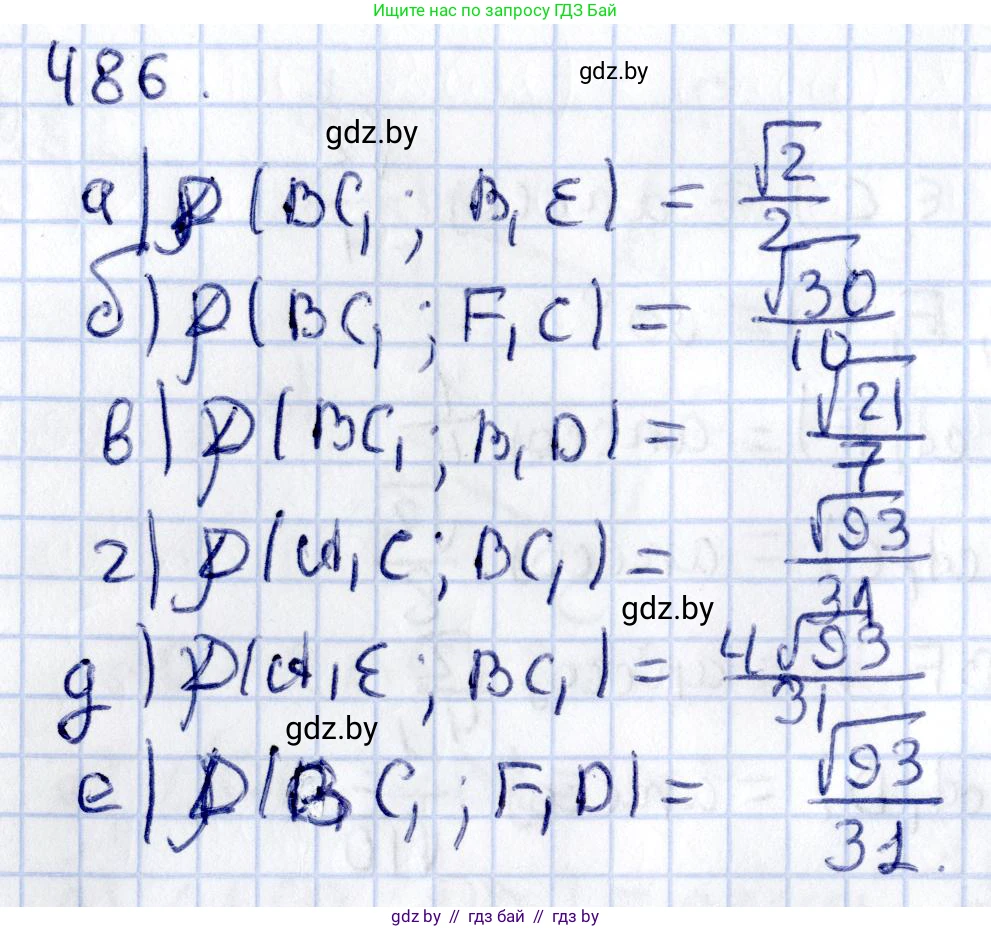 Ищите нас по запросу ГДЗ Бай
486.
gdz.by
gdz.by
а) ρ(BC₁; B₁E) = √2/2
б) ρ(BC₁; F₁C) = √30/10
в) ρ(BC₁; B₁D) = √21/7
г) ρ(A₁C; BC₁) = √93/31
gdz.by
д) ρ(A₁E; BC₁) = 4√93/31
gdz.by
е) ρ(BC₁; F₁D) = √93/31.
gdz.by // гдз бай // гдз by